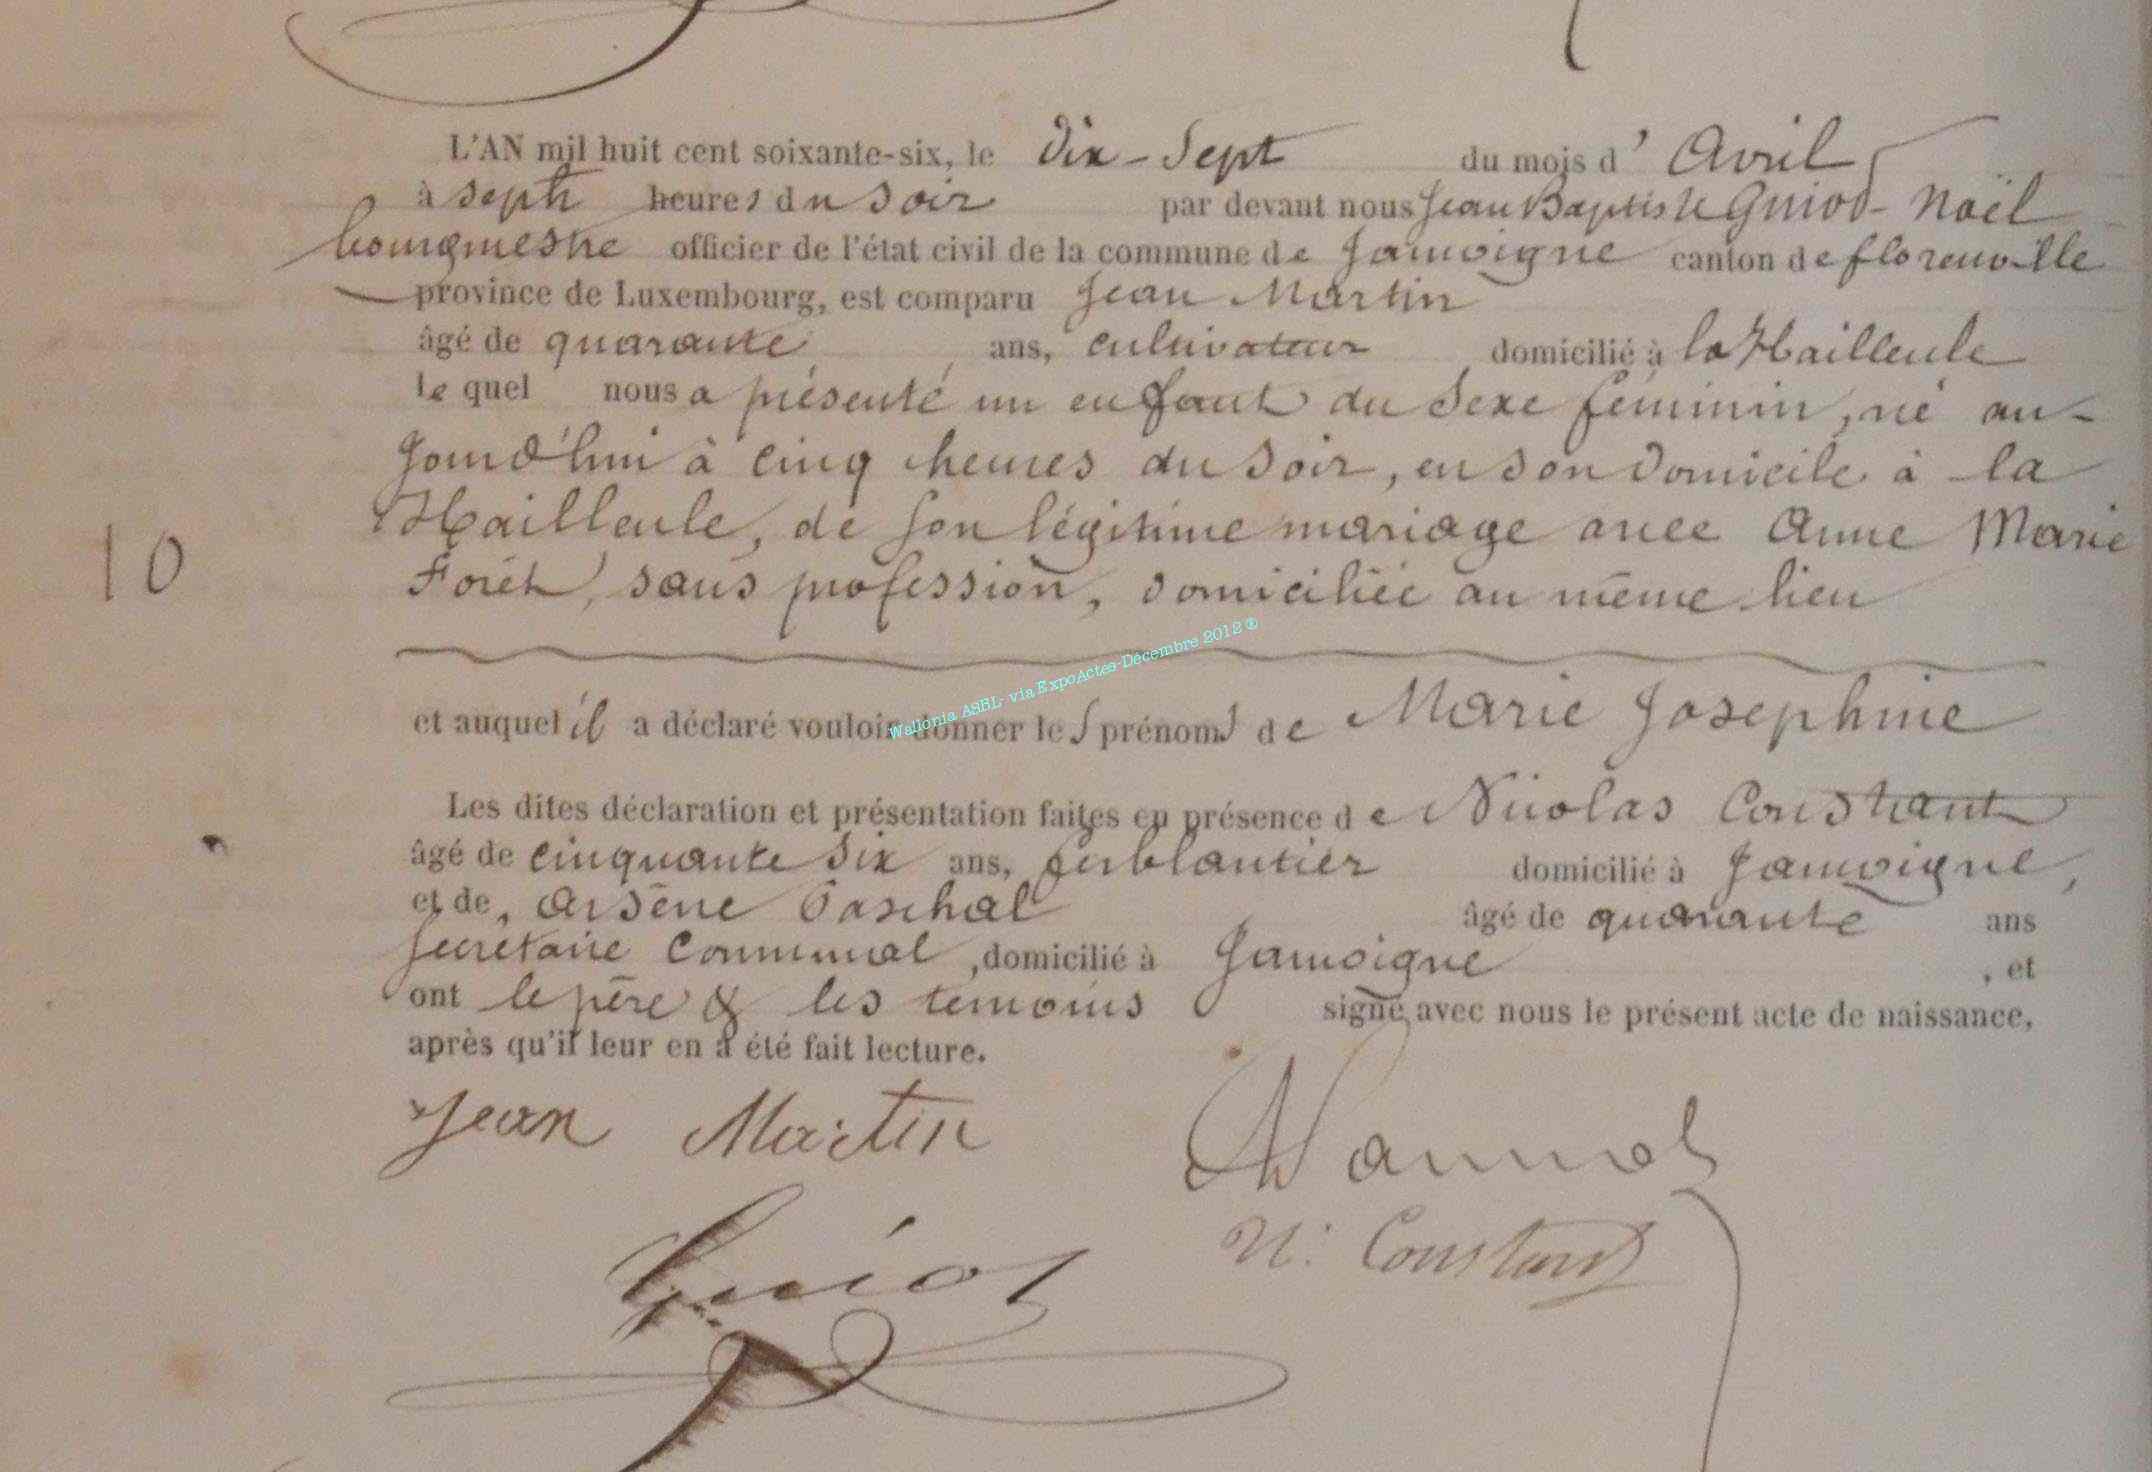 L'AN mil huit cent soixante-six, le Dix-Sept du mois d' Avril
à sept heures du Soir par devant nous Jean Baptiste Guiot-Noël
bourgmestre officier de l'état civil de la commune de Jamoigne canton de florenville
province de Luxembourg, est comparu Jean Martin
âgé de quarante ans, cultivateur domicilié à la Hailleule
le quel nous a présenté un enfant du Sexe féminin, né au-
jourd'hui à cinq heures du Soir, en son Domicile à la
Hailleule, de son légitime mariage avec Anne Marie
Forêt, sans profession, domiciliée au même lieu
10
et auquel il a déclaré vouloir donner les prénoms de Marie Josephine
Wallonia ASBL- via ExpoActes-Décembre 2012 ®
Les dites déclaration et présentation faites en présence de Nicolas Constant
âgé de cinquante six ans, ferblantier domicilié à Jamoigne,
et de, Arsène Paschal âgé de quarante ans
Secrétaire Communal, domicilié à Jamoigne, et
ont le père & les témoins signé avec nous le présent acte de naissance,
après qu'il leur en a été fait lecture.
Jean Martin
N. Constant
Guiot